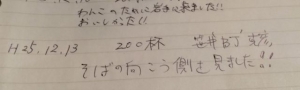 わんこのために岩手に来ました!!
おいしかった!!
H25.12.13 200杯
そばの向こう側は見ました!!